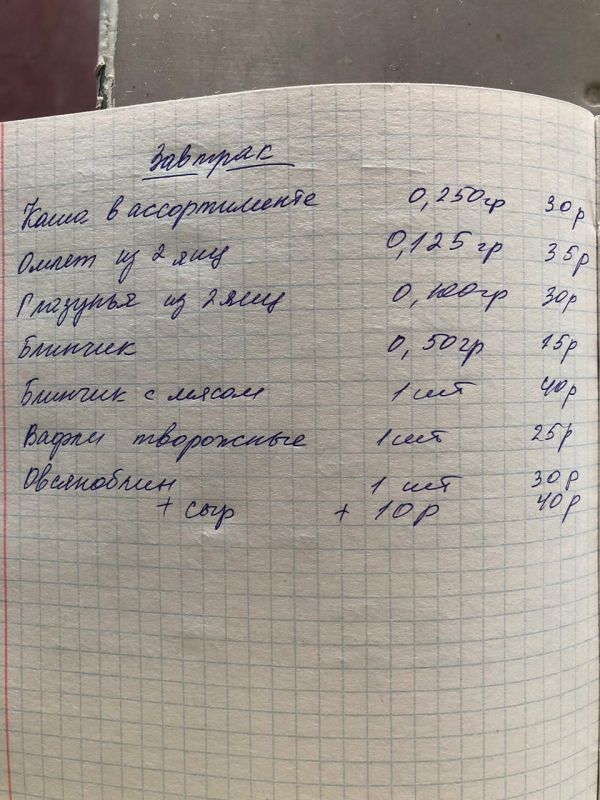 Завтрак
Каша в ассортименте 0,250гр 30р
Омлет из 2 яиц 0,125гр 35р
Глазунья из 2 яиц 0,100гр 30р
Блинчик 0,50гр 15р
Блинчик с мясом 1 шт 40р
Вафли творожные 1 шт 25р
Овсяноблин 1 шт 30р
+ сыр + 10р 40р